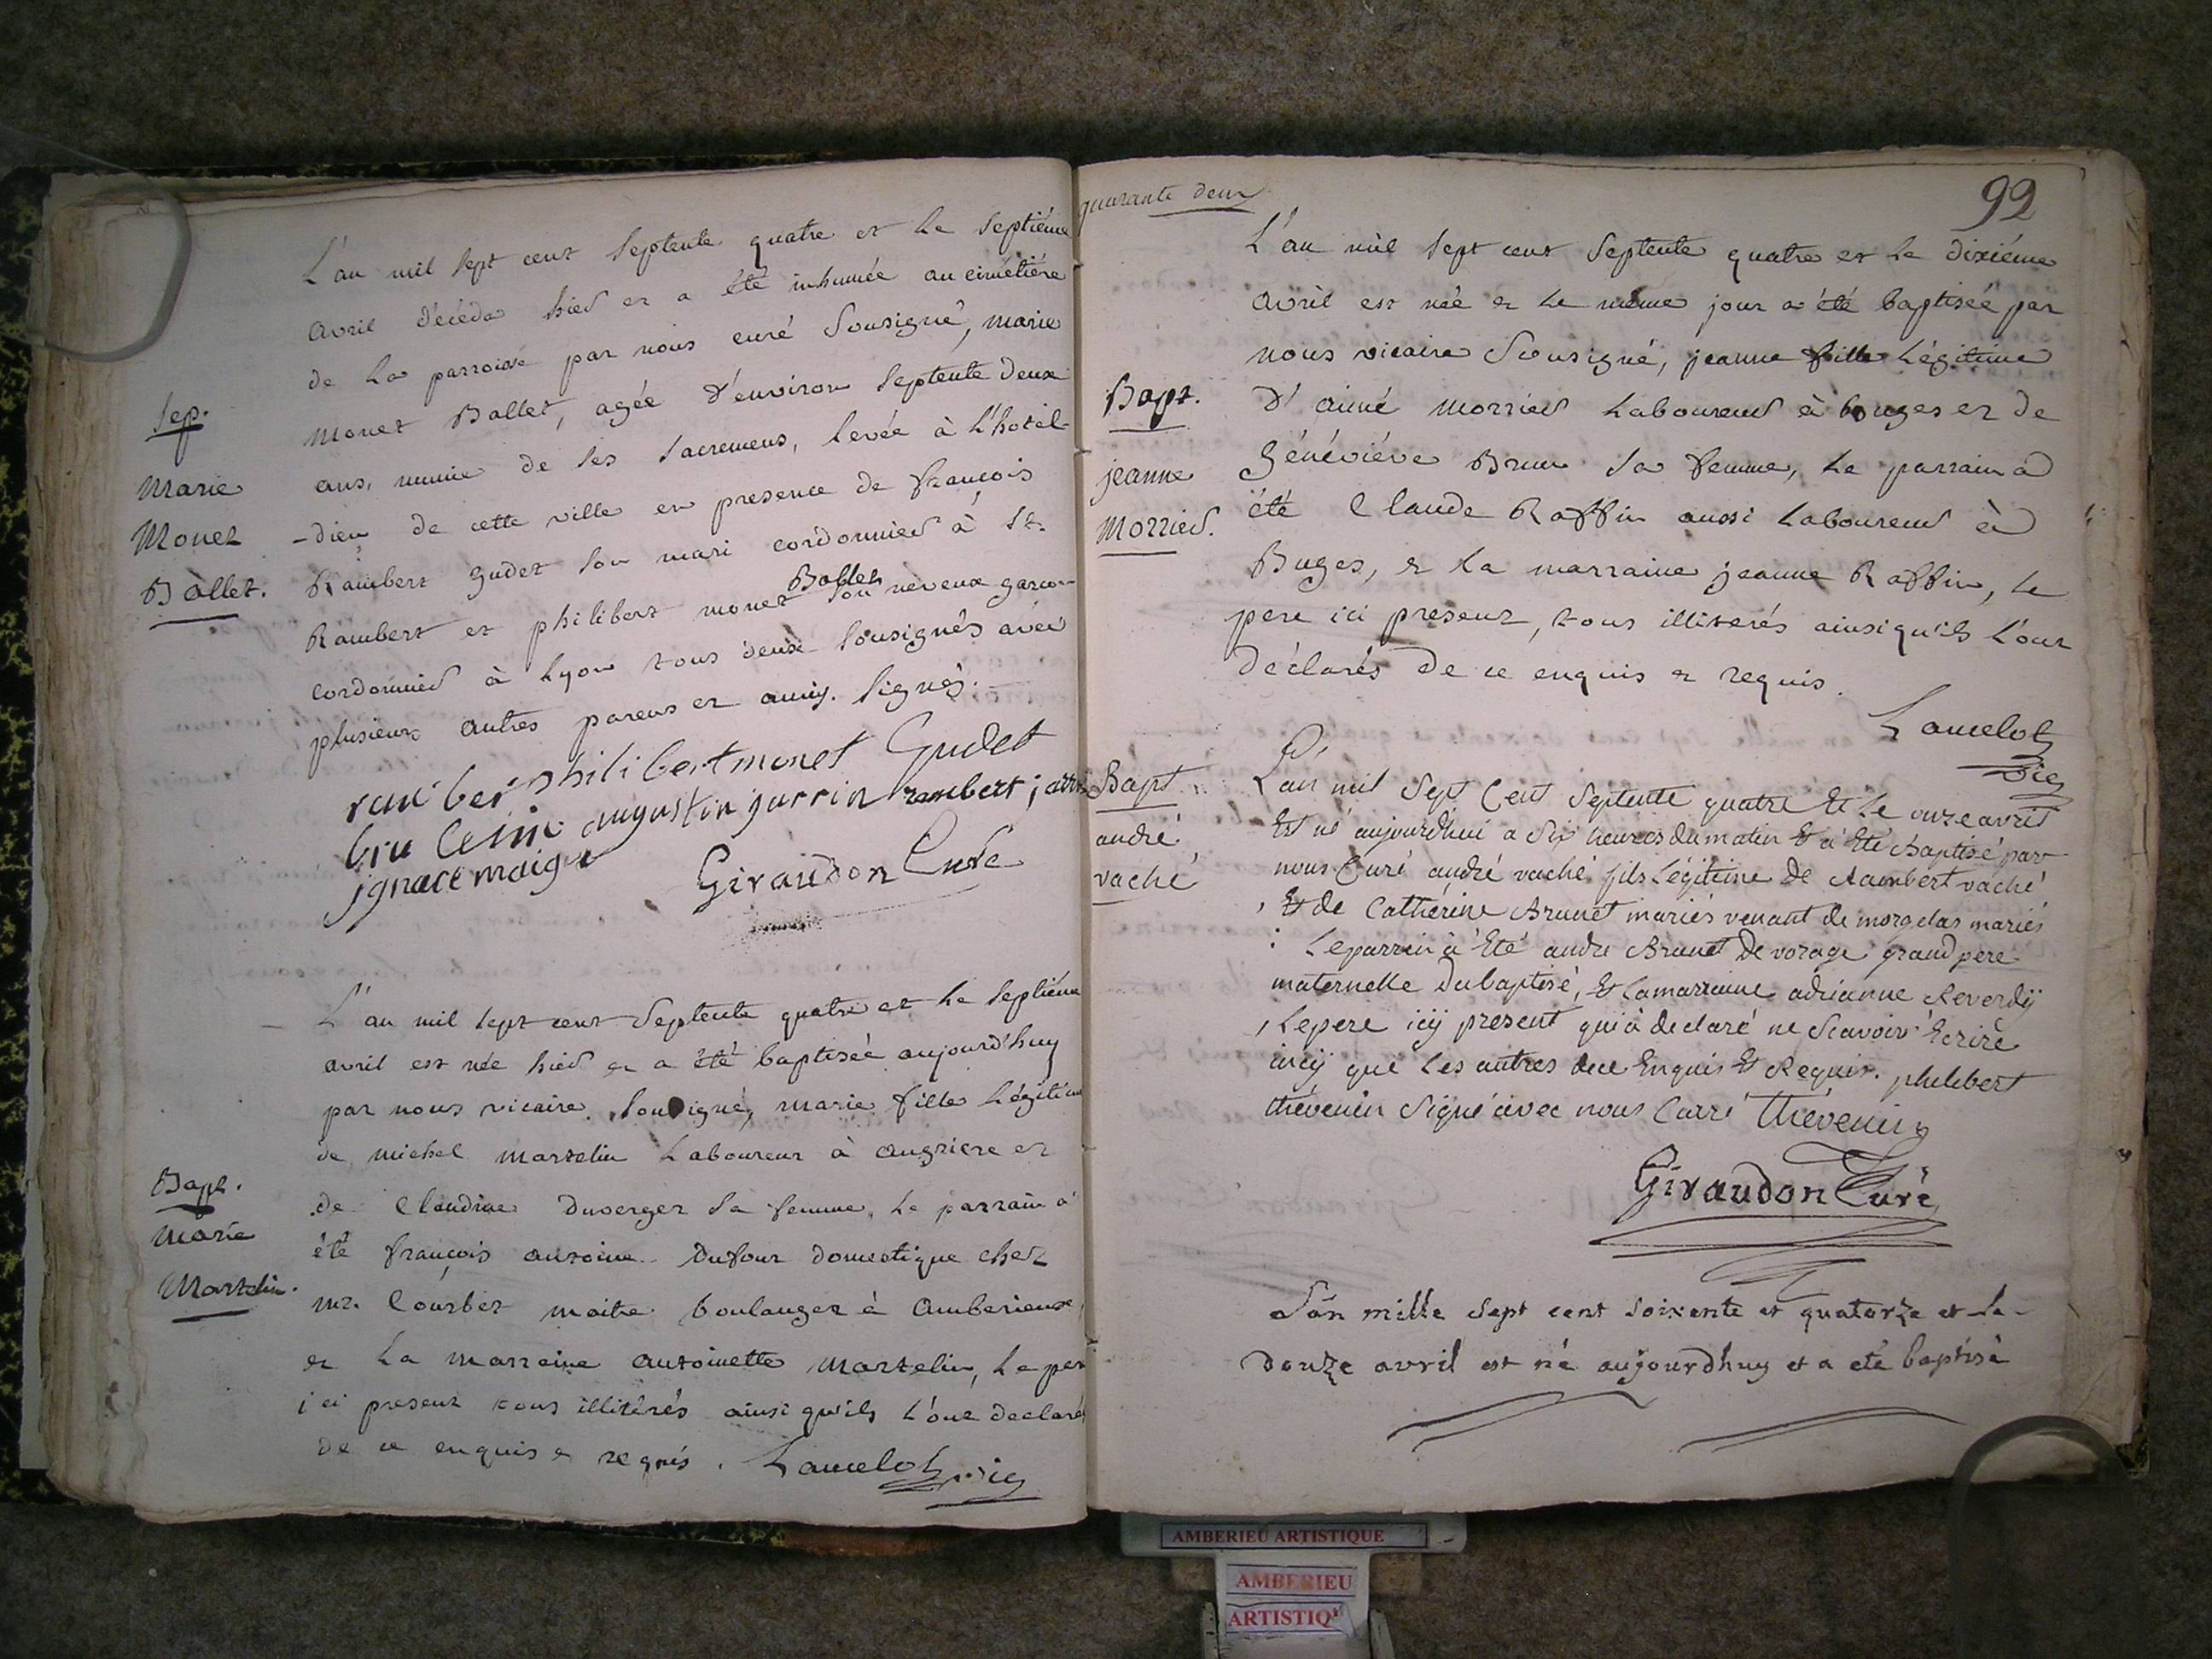 L'an mil sept cent septente quatre et le septiéme
avril décéda hier et a été inhumée au cimetiére
de la parroisse par nous curé sousigné, marie
Sep.
monet Ballet, agée d'environ septente deux
Marie
ans, munie de ses sacremens, levée à l'hotel-
Monet
-dieu de cette ville en presence de françois
Ballet.
Rambert Gudet son mari cordonnier à St.
Rambert et philibert monet Ballet son neveux garcon
cordonnier à Lyon tous deux sousignés avec
plusieurs autres parens et amis. signés.
philibert monet Gudet
augustin jarrin rambert jarrin
ignace
Giraudon Curé
L'an mil sept cent septente quatre et le septiéme
avril est née hier et a été baptisée aujourd'huy
par nous vicaire sousigné, marie fille légitime
de michel martelin Laboureur à angriere et
Bapt.
de Claudine Duverger sa femme, le parrain a
Marie
été françois antoine Dufour domestique chez
Martelin.
mr. Courbet maitre boulanger à Amberieux,
et la marraine antoinette martelin, le pere
ici present tous illitérés ainsi qu'ils l'ont declarés
de ce enquis et requis. Lancelot vic
quarante deux
92
L'an mil sept cent septente quatre et le dixiéme
avril est née et le même jour a été baptisée par
nous vicaire sousigné, jeanne fille légitime
Bapt.
d'aimé morrier Laboureur à buges et de
jeanne
Généviéve Brun sa femme, le parrain a
Morrier.
été Claude Raffin aussi Laboureur à
Buges, et la marraine jeanne Raffin, le
pere ici present, tous illiterés ainsi qu'ils l'ont
déclarés de ce enquis et requis.
Lancelot
vic
Bapt
L'an mil sept Cent septente quatre Et Le onze avril
andré
Est né aujourdhui a six heures du matin Et a Eté Baptisé par
vaché
nous Curé andré vaché fils Légitime de Rambert vaché
Et de Catherine Brunet mariés venant de morgelas mariés
Le parrin a Eté andre Brunet de vorage grand pere
maternelle du baptisé, Et la marianne adrianne Reverdij
, Le pere icij present qui a declaré ne scavoir Ecrire
incij que Les autres dece Enquis Et Requis. philibert
thévenin signé avec nous Curé Thévenin
Giraudon Curé
L'an mille sept cent soixante et quatorze et le
douze avril est né aujourdhuy et a eté baptisé
AMBERIEU ARTISTIQUE
AMBERIEU
ARTISTIQ